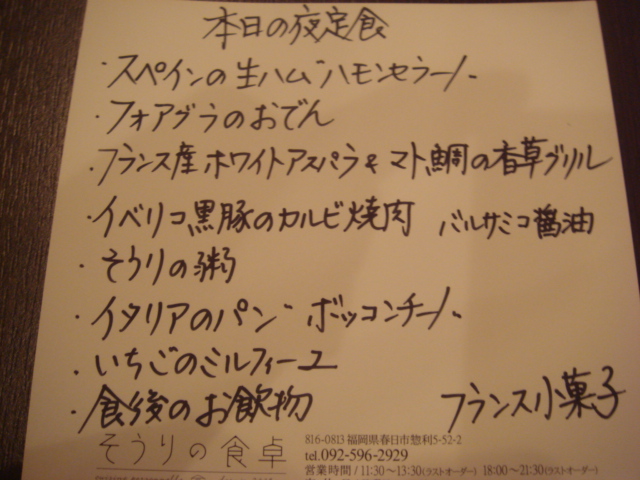 本日の夜定食
・スペインの生ハム"ハモンセラーノ"
・フォアグラのおでん
・フランス産ホワイトアスパラ&マト鯛の香草グリル
・イベリコ黒豚のカルビ焼肉 バルサミコ醤油
・そうりの粥
・イタリアのパン"ボッコンチーノ"
・いちごのミルフィーユ
・食後のお飲物 フランス小菓子
そうりの食卓
816-0813 福岡県春日市惣利5-52-2
tel.092-596-2929
営業時間 / 11:30〜13:30(ラストオーダー) 18:00〜21:30(ラストオーダー)